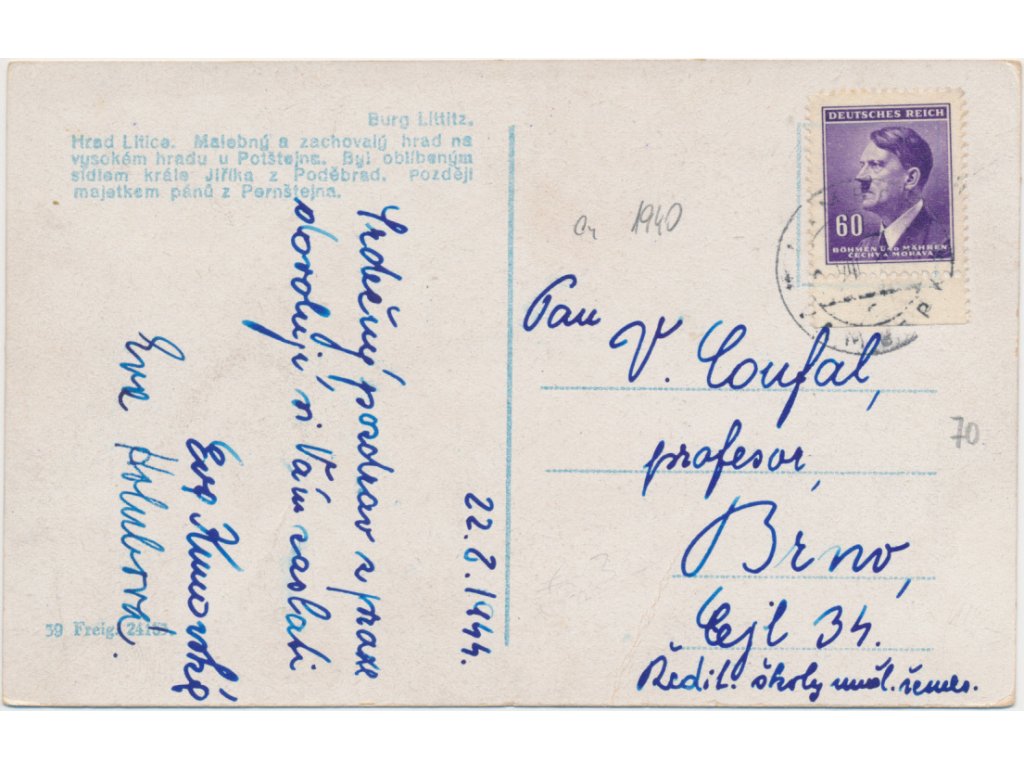 Burg Littitz.
Hrad Litice. Malebný a zachovalý hrad na
vysokém hradu u Potštejna. Byl oblíbeným
sídlem krále Jiříka z Poděbrad, později
majetkem pánů z Pernštejna.
Srdečný pozdrav z praxe
dovolují si Vám zaslati
Eva
Eva Holubová.
22.8.1944.
59 Freig. 24153
1940
DEUTSCHES REICH
60
BÖHMEN UND MÄHREN
ČECHY A MORAVA
Pan
V. Coufal,
profesor,
Brno,
Cejl 34.
Ředit. školy uměl. řemes.
70